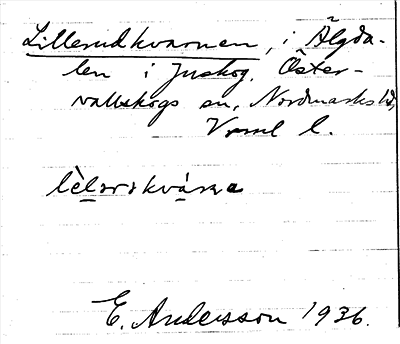 Lillerudkvarnen, i Älgda-
len i Juskog. Öster-
vallskogs sn, Nordmarks hd,
Vrml l.
E. Andersson 1936.